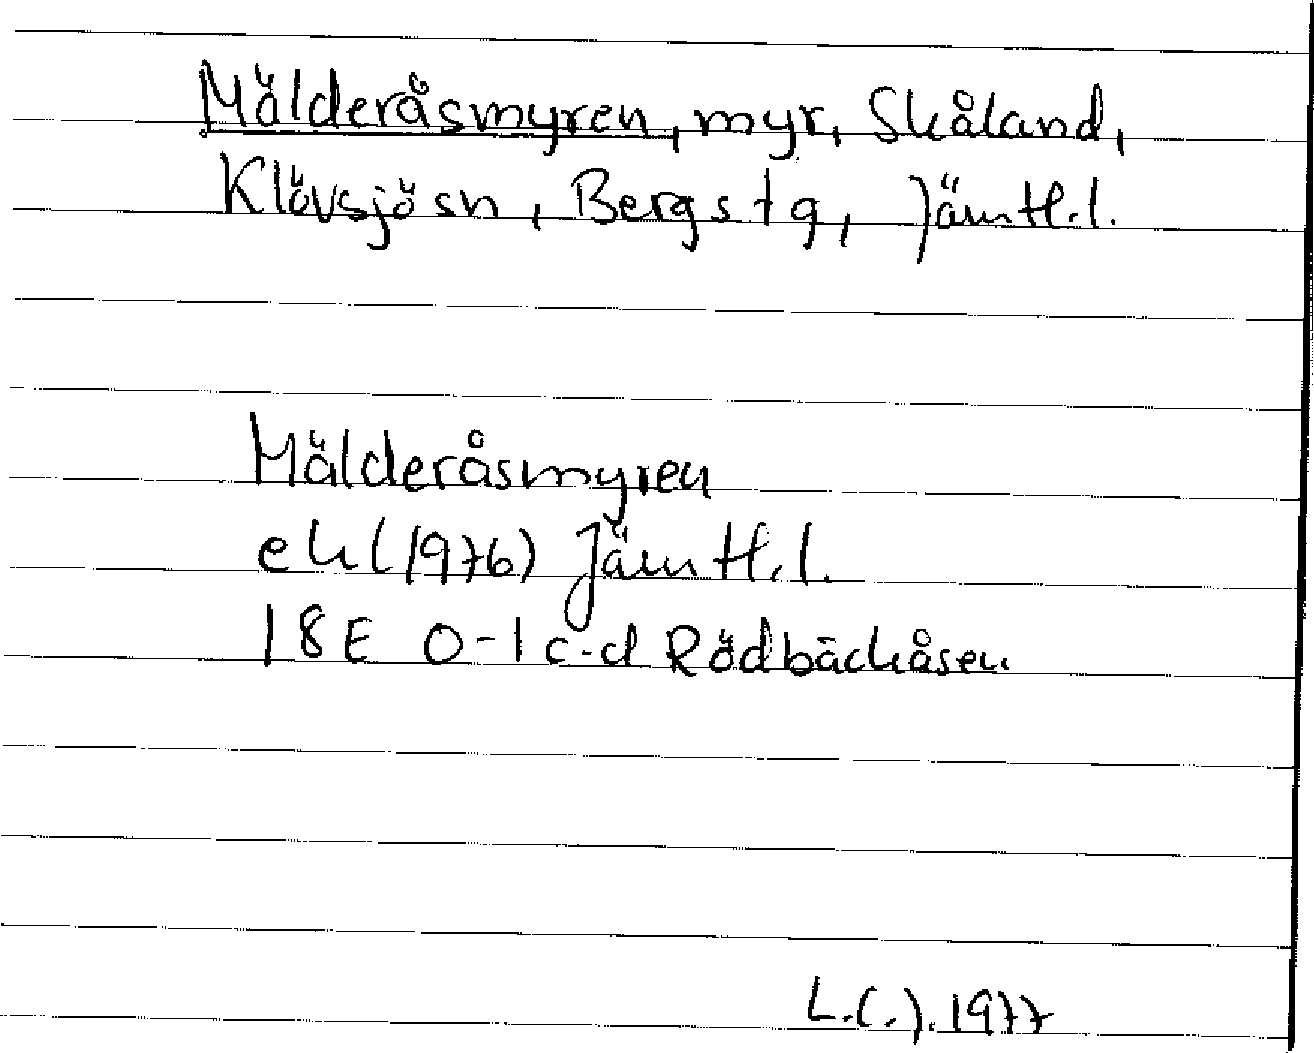 Mälderåsmyren, myr, Skåland,
Klövsjösn, Bergs tg, Jämtl.l.
Mälderåsmyren
ek (1976) Jämtl.l.
18E 0-1 c-d Rödbäckåsen
L.(.).1977